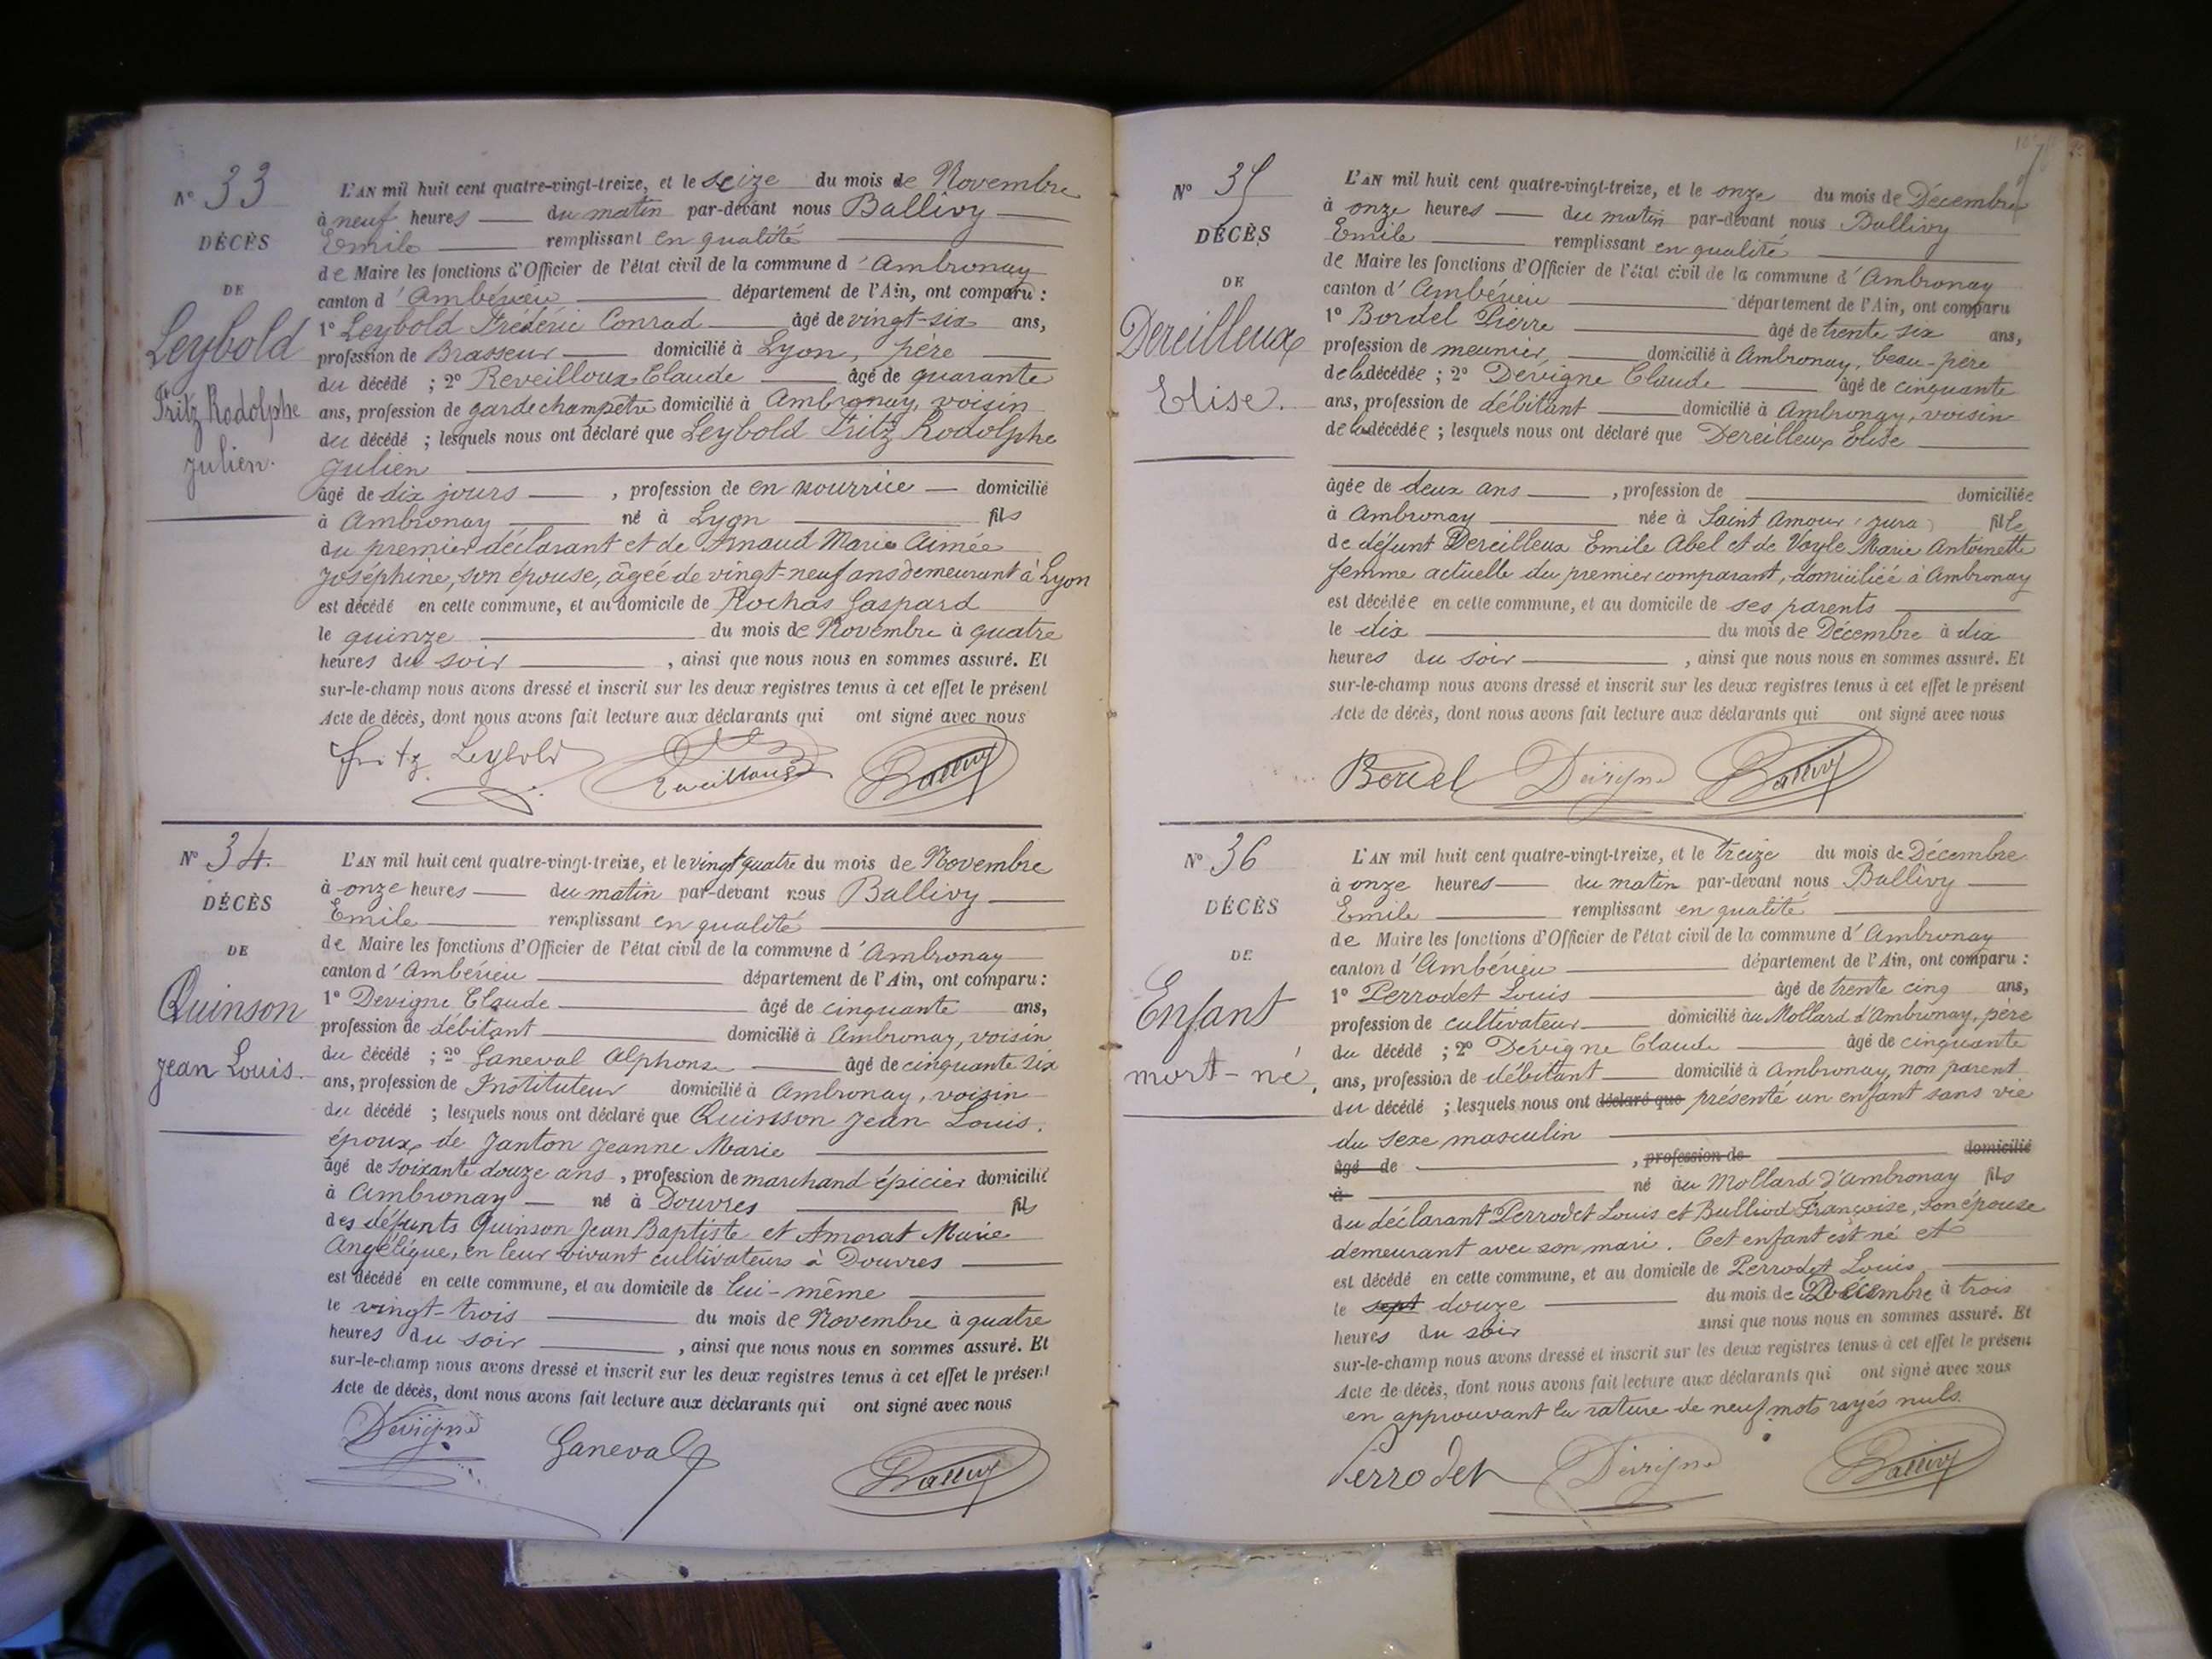 N° 33
DÉCÈS
DE
Leybold
Fritz Rodolphe
Julien.
L'AN mil huit cent quatre-vingt-treize, et le seize du mois de Novembre
à neuf heures du matin par-devant nous Ballivy
Emile remplissant en qualité
de Maire les fonctions d'Officier de l'état civil de la commune d'Ambronay
canton d'Ambérieu département de l'Ain, ont comparu :
1° Leybold Frédéric Conrad âgé de vingt-six ans,
profession de Brasseur domicilié à Lyon, père
du décédé ; 2° Reveilloux Claude âgé de quarante
ans, profession de garde champêtre domicilié à Ambronay, voisin
du décédé ; lesquels nous ont déclaré que Leybold Fritz Rodolphe
Julien
âgé de dix jours , profession de en nourrice domicilié
à Ambronay né à Lyon fils
du premier déclarant et de Arnaud Marie Aimée
Joséphine, son épouse, âgée de vingt-neuf ans demeurant à Lyon
est décédé en cette commune, et au domicile de Rochas Gaspard
le quinze du mois de Novembre à quatre
heures du soir , ainsi que nous nous en sommes assuré. Et
sur-le-champ nous avons dressé et inscrit sur les deux registres tenus à cet effet le présent
Acte de décès, dont nous avons fait lecture aux déclarants qui ont signé avec nous
Fritz Leybold Reveilloux Ballivy
N° 34.
DÉCÈS
DE
Quinson
Jean Louis.
L'AN mil huit cent quatre-vingt-treize, et le vingt quatre du mois de Novembre
à onze heures du matin par-devant nous Ballivy
Emile remplissant en qualité
de Maire les fonctions d'Officier de l'état civil de la commune d'Ambronay
canton d'Ambérieu département de l'Ain, ont comparu :
1° Devigne Claude âgé de cinquante ans,
profession de débitant domicilié à Ambronay, voisin
du décédé ; 2° Ganeval Alphonse âgé de cinquante six
ans, profession de Instituteur domicilié à Ambronay, voisin
du décédé ; lesquels nous ont déclaré que Quinson Jean Louis,
époux de Janton Jeanne Marie
âgé de soixante douze ans , profession de marchand épicier domicilié
à Ambronay né à Douvres fils
des défunts Quinson Jean Baptiste et Amorat Marie
Angélique, en leur vivant cultivateurs à Douvres
est décédé en cette commune, et au domicile de lui-même
le vingt-trois du mois de Novembre à quatre
heures du soir , ainsi que nous nous en sommes assuré. Et
sur-le-champ nous avons dressé et inscrit sur les deux registres tenus à cet effet le présent
Acte de décès, dont nous avons fait lecture aux déclarants qui ont signé avec nous
Devigne Ganeval Ballivy
N° 35
DÉCÈS
DE
Dereilleux
Elise.
L'AN mil huit cent quatre-vingt-treize, et le onze du mois de Décembre
à onze heures du matin par-devant nous Ballivy
Emile remplissant en qualité
de Maire les fonctions d'Officier de l'état civil de la commune d'Ambronay
canton d'Ambérieu département de l'Ain, ont comparu
1° Bordel Pierre âgé de trente six ans,
profession de meunier, domicilié à Ambronay, beau-père
de la décédée ; 2° Devigne Claude âgé de cinquante
ans, profession de débitant domicilié à Ambronay, voisin
de la décédée ; lesquels nous ont déclaré que Dereilleux Elise
âgée de deux ans , profession de domiciliée
à Ambronay née à Saint Amour (Jura) fille
de défunt Dereilleux Emile Abel et de Voyle Marie Antoinette
femme actuelle du premier comparant, domiciliée à Ambronay
est décédée en cette commune, et au domicile de ses parents
le dix du mois de Décembre à dix
heures du soir , ainsi que nous nous en sommes assuré. Et
sur-le-champ nous avons dressé et inscrit sur les deux registres tenus à cet effet le présent
Acte de décès, dont nous avons fait lecture aux déclarants qui ont signé avec nous
Bordel Devigne Ballivy
N° 36
DÉCÈS
DE
Enfant
mort-né.
L'AN mil huit cent quatre-vingt-treize, et le treize du mois de Décembre
à onze heures du matin par-devant nous Ballivy
Emile remplissant en qualité
de Maire les fonctions d'Officier de l'état civil de la commune d'Ambronay
canton d'Ambérieu département de l'Ain, ont comparu :
1° Perrodet Louis âgé de trente cinq ans,
profession de cultivateur domicilié au Mollard d'Ambronay, père
du décédé ; 2° Devigne Claude âgé de cinquante
ans, profession de débitant domicilié à Ambronay, non parent
du décédé ; lesquels nous ont déclaré que présenté un enfant sans vie
du sexe masculin
âgé de , profession de domicilié
à né au Mollard d'Ambronay fils
du déclarant Perrodet Louis et Bulliod Françoise, son épouse
demeurant avec son mari. Cet enfant est né et
est décédé en cette commune, et au domicile de Perrodet Louis
le sept douze du mois de Décembre à trois
heures du soir ainsi que nous nous en sommes assuré. Et
sur-le-champ nous avons dressé et inscrit sur les deux registres tenus à cet effet le présent
Acte de décès, dont nous avons fait lecture aux déclarants qui ont signé avec nous
en approuvant la rature de neuf mots rayés nuls.
Perrodet Devigne Ballivy